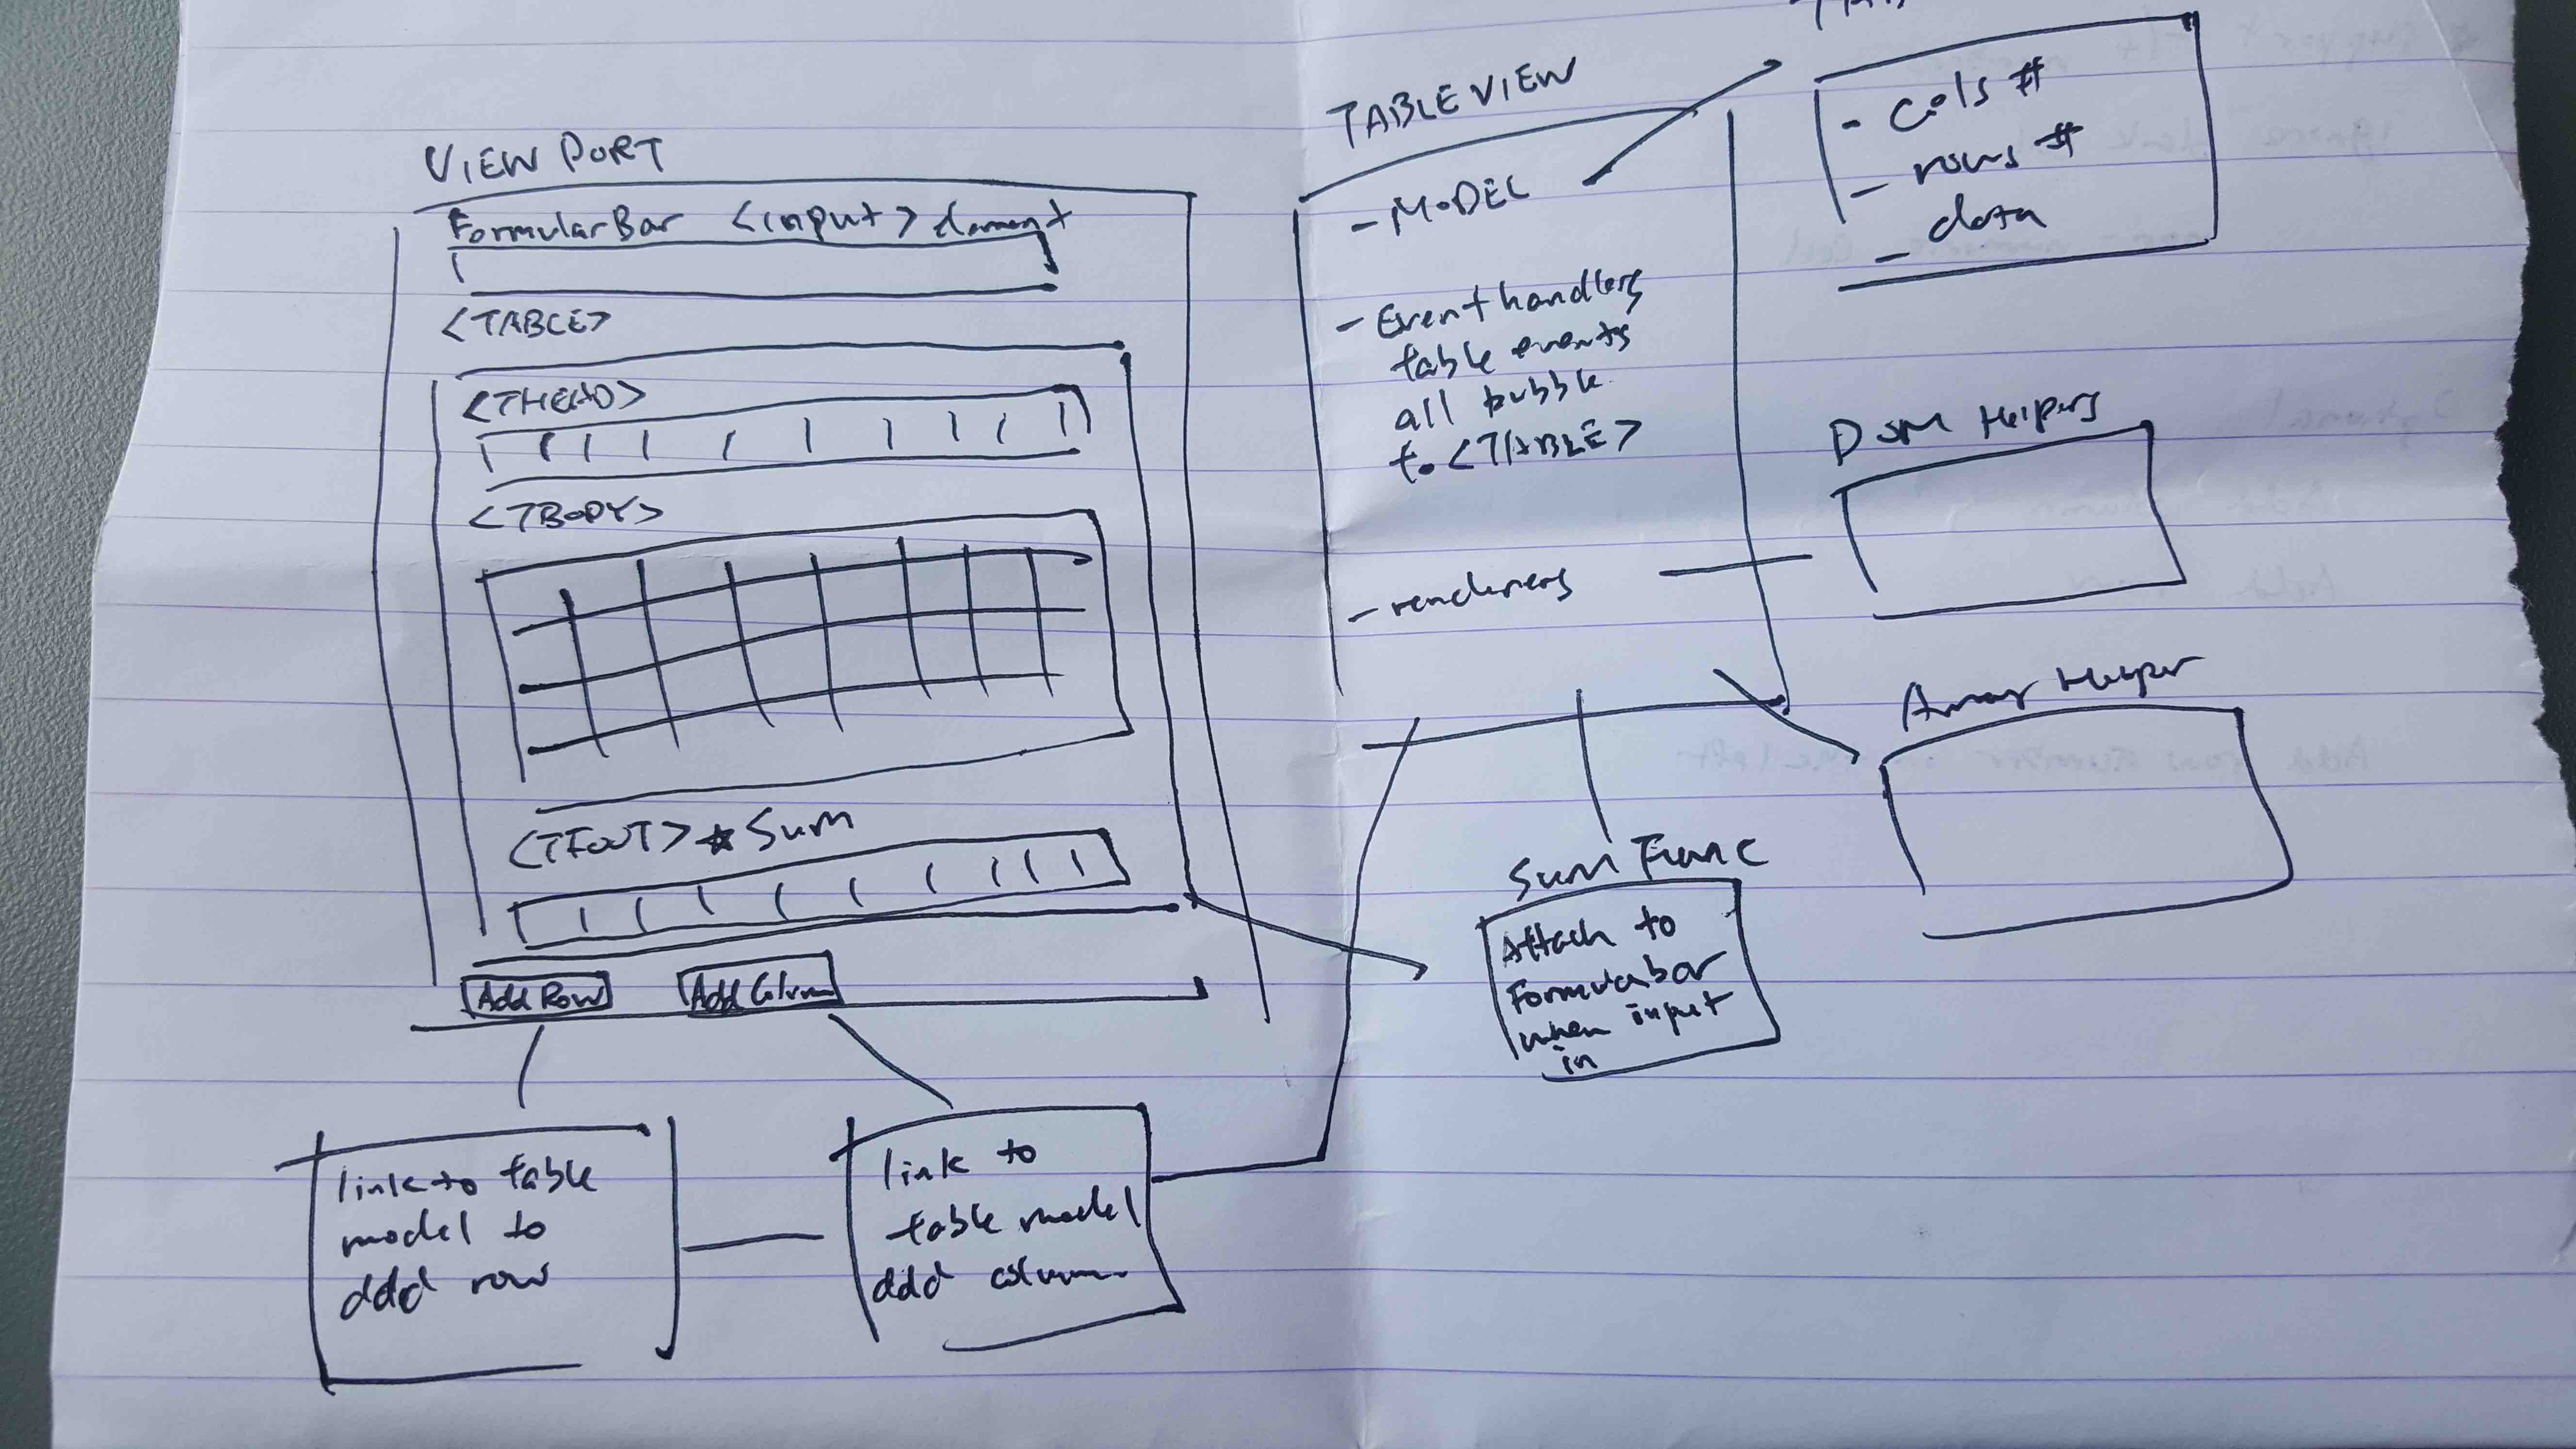 VIEW PORT
FormularBar <input> element
<TABLE>
<THEAD>
<TBODY>
<TFOOT> * Sum
Add Row
Add Column
link to table
model to
add row
link to
table model
add column
TABLE VIEW
- MODEL
- Event handlers
table events
all bubble
to <TABLE>
- renderers
- cols #
- rows #
- data
DOM Helpers
Array Helper
Sum Func
Attach to
Formulabar
when input
in